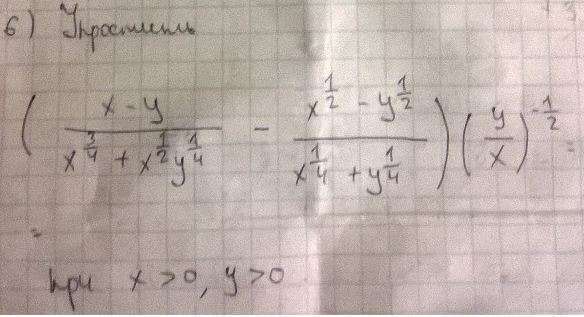 6) Упростить
( \frac{x - y}{x^{\frac{3}{4}} + x^{\frac{1}{2}} y^{\frac{1}{4}}} - \frac{x^{\frac{1}{2}} - y^{\frac{1}{2}}}{x^{\frac{1}{4}} + y^{\frac{1}{4}}} ) ( \frac{y}{x} )^{-\frac{1}{2}} =
=
при x > 0, y > 0